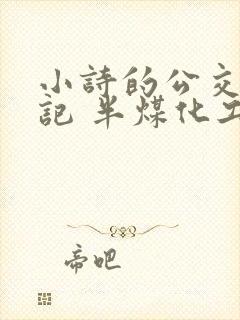 小詩的公交
記 半煤化工
帝吧